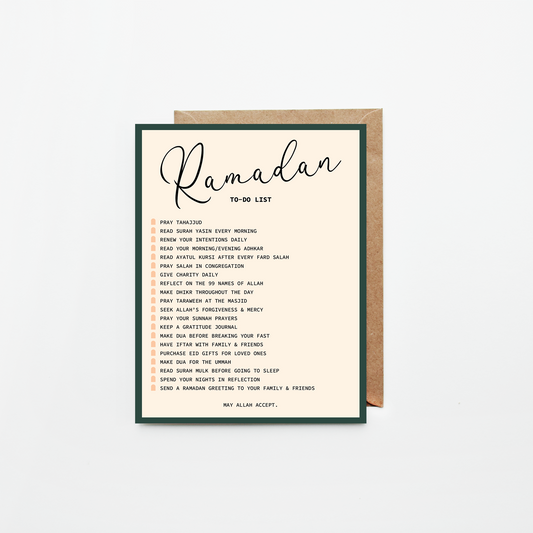 Ramadan
TO-DO LIST
PRAY TAHAJJUD
READ SURAH YASIN EVERY MORNING
RENEW YOUR INTENTIONS DAILY
READ YOUR MORNING/EVENING ADHKAR
READ AYATUL KURSI AFTER EVERY FARD SALAH
PRAY SALAH IN CONGREGATION
GIVE CHARITY DAILY
REFLECT ON THE 99 NAMES OF ALLAH
MAKE DHIKR THROUGHOUT THE DAY
PRAY TARAWEEH AT THE MASJID
SEEK ALLAH'S FORGIVENESS & MERCY
PRAY YOUR SUNNAH PRAYERS
KEEP A GRATITUDE JOURNAL
MAKE DUA BEFORE BREAKING YOUR FAST
HAVE IFTAR WITH FAMILY & FRIENDS
PURCHASE EID GIFTS FOR LOVED ONES
MAKE DUA FOR THE UMMAH
READ SURAH MULK BEFORE GOING TO SLEEP
SPEND YOUR NIGHTS IN REFLECTION
SEND A RAMADAN GREETING TO YOUR FAMILY & FRIENDS
MAY ALLAH ACCEPT.